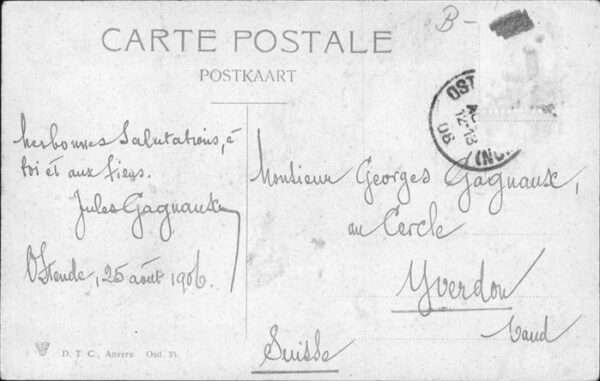 B-
CARTE POSTALE
POSTKAART
OST
12-13
06
(NO
Mes bonnes salutations, à
toi et aux tiens.
Jules Gagnaux
Ostende, 25 août 1906.
Monsieur Georges Gagnaux,
au Cercle
Yverdon
Vaud
Suisse
D. T. C., Anvers Ost.